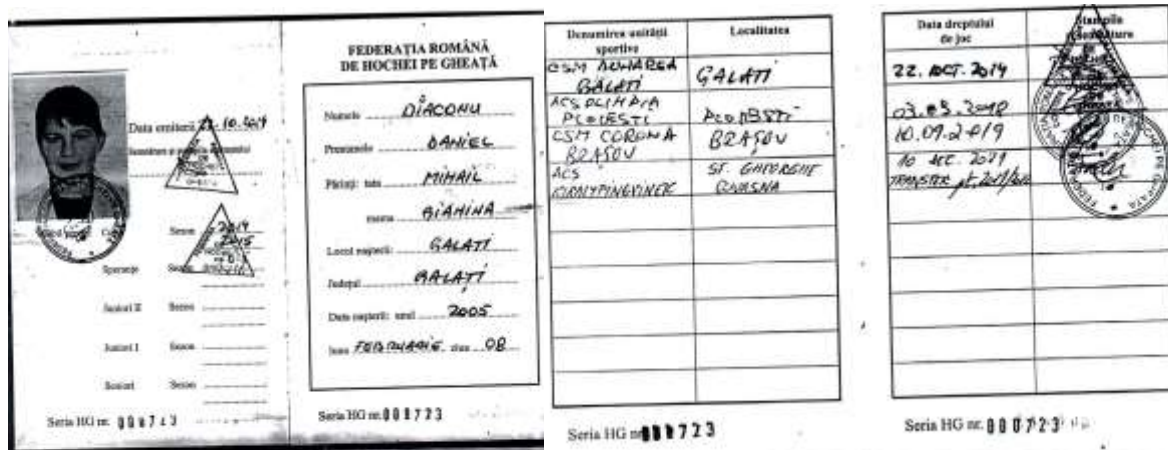 Data emiterii 22.10.2014
Sezon 2014
2015
Speranțe Sezon
Juniori II Sezon
Juniori I Sezon
Seniori Sezon
Seria HG nr. 000723
FEDERAȚIA ROMÂNĂ
DE HOCHEI PE GHEAȚĂ
Numele DIACONU
Prenumele DANIEL
Părinți: tata MIHAIL
mama
Locul nașterii: GALAȚI
Județul GALAȚI
Data nașterii: anul 2005
luna FEBRUARIE ziua 08
Seria HG nr. 000723
Denumirea unității
sportive
Localitatea
CSM DUNAREA
GALAȚI
GALAȚI
ACS OLIMPIA
PLOIESTI
PLOIESTI
CSM CORONA
BRAȘOV
BRAȘOV
ACS
ST. GHEORGHE
Seria HG nr. 000723
Data dreptului
de joc
Ștampila
22. OCT. 2014
03.09.2018
10.09.2019
TRANSFER pt.
Seria HG nr. 000723